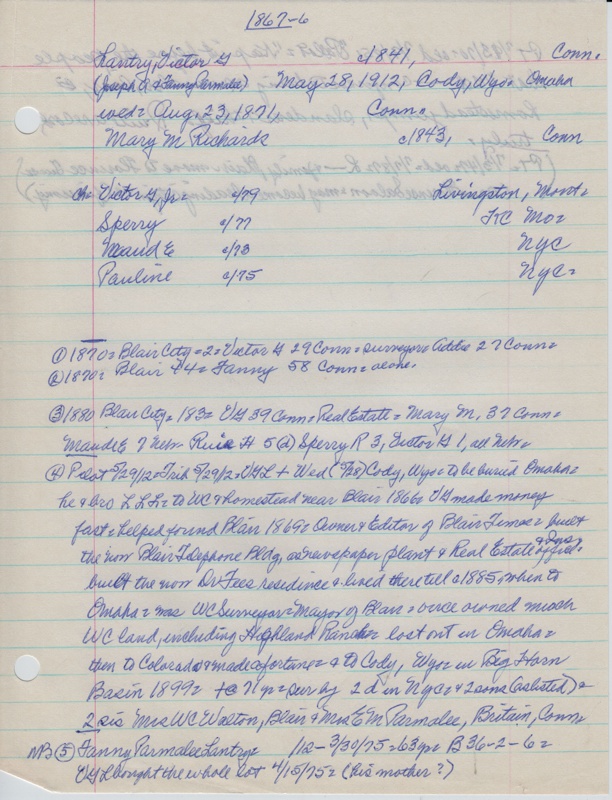 1867-6
Lantry, Victor G c1841, Conn.
(Joseph & Fanny Parmalee) May 28, 1912, Cody, Wyo. Omaha
wed= Aug. 23, 1871, Conn.
Mary M Richards c1843, Conn
Ch= Victor G, Jr= c/79 Livingston, Mont=
Sperry c/77 KC Mo=
Maud E c/73 NYC
Pauline c/75 NYC=
① 1870= Blair City= 2= Victor G 29 Conn= surveyor= Addie 27 Conn=
② 1870= Blair 44= Fanny 58 Conn= alone.
③ 1880 Blair City= 183= VG 39 Conn= Real Estate= Mary M, 37 Conn=
Maud E 7 Neb= H 5 (d) Sperry P 3, Victor G 1, all Neb=
④ Pilot 5/29/12= Trib 5/29/12= VGL + Wed (5/28) Cody, Wyo= to be buried Omaha=
he & bro L.L.L= to WC & homestead near Blair 1866= VG made money
fast= helped found Blair 1869= Owner & Editor of Blair Times= built
the now Blair Telephone Bldg, as newspaper plant & Real Estate & Ins office=
built the now Dr Fees residence & lived there till c1885, when to
Omaha= was WC Surveyor= Mayor of Blair= once owned much
WC land, including Highland Ranch= lost out in Omaha=
then to Colorado & made a fortune= & to Cody, Wyo= in Big Horn
Basin 1899= +@ 71 yr= sur by 2 d in Nyc= & 2 sons (as listed)=
2 sis Mrs WC Walton, Blair & Mrs E M Parmalee, Britain, Conn=
NB ⑤ Fanny Parmalee Lantry= /12- 3/30/75= 63 yr= B 36-2-6=
VGL bought the whole lot 4/15/75= (his mother?)